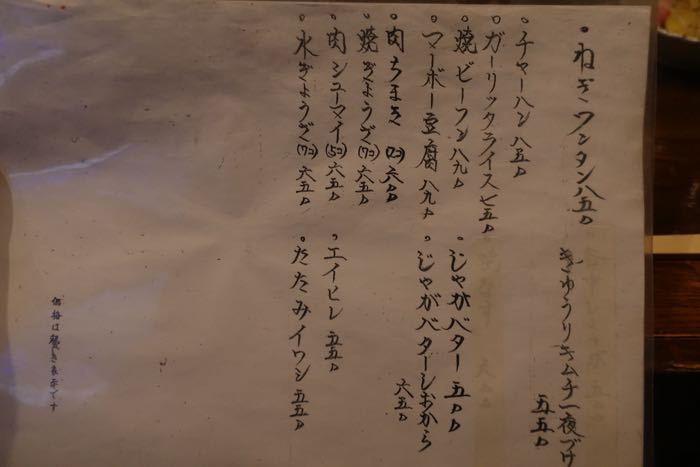 。ねぎワンタン 八五〇
きゅうりキムチ一夜づけ
五五〇
。チャーハン 八五〇
。ガーリックライス 七五〇
。焼ビーフン 八九〇
。じゃがバター 五〇〇
。マーボー豆腐 八九〇
。じゃがバターしおから
六五〇
。肉ちまき (2コ) 六〇〇
。焼ぎょうざ (7コ) 六五〇
。肉シューマイ (5コ) 六五〇
。エイヒレ 五五〇
。水ぎょうざ (7コ) 六五〇
。たたみイワシ 五五〇
価格は税き表示です